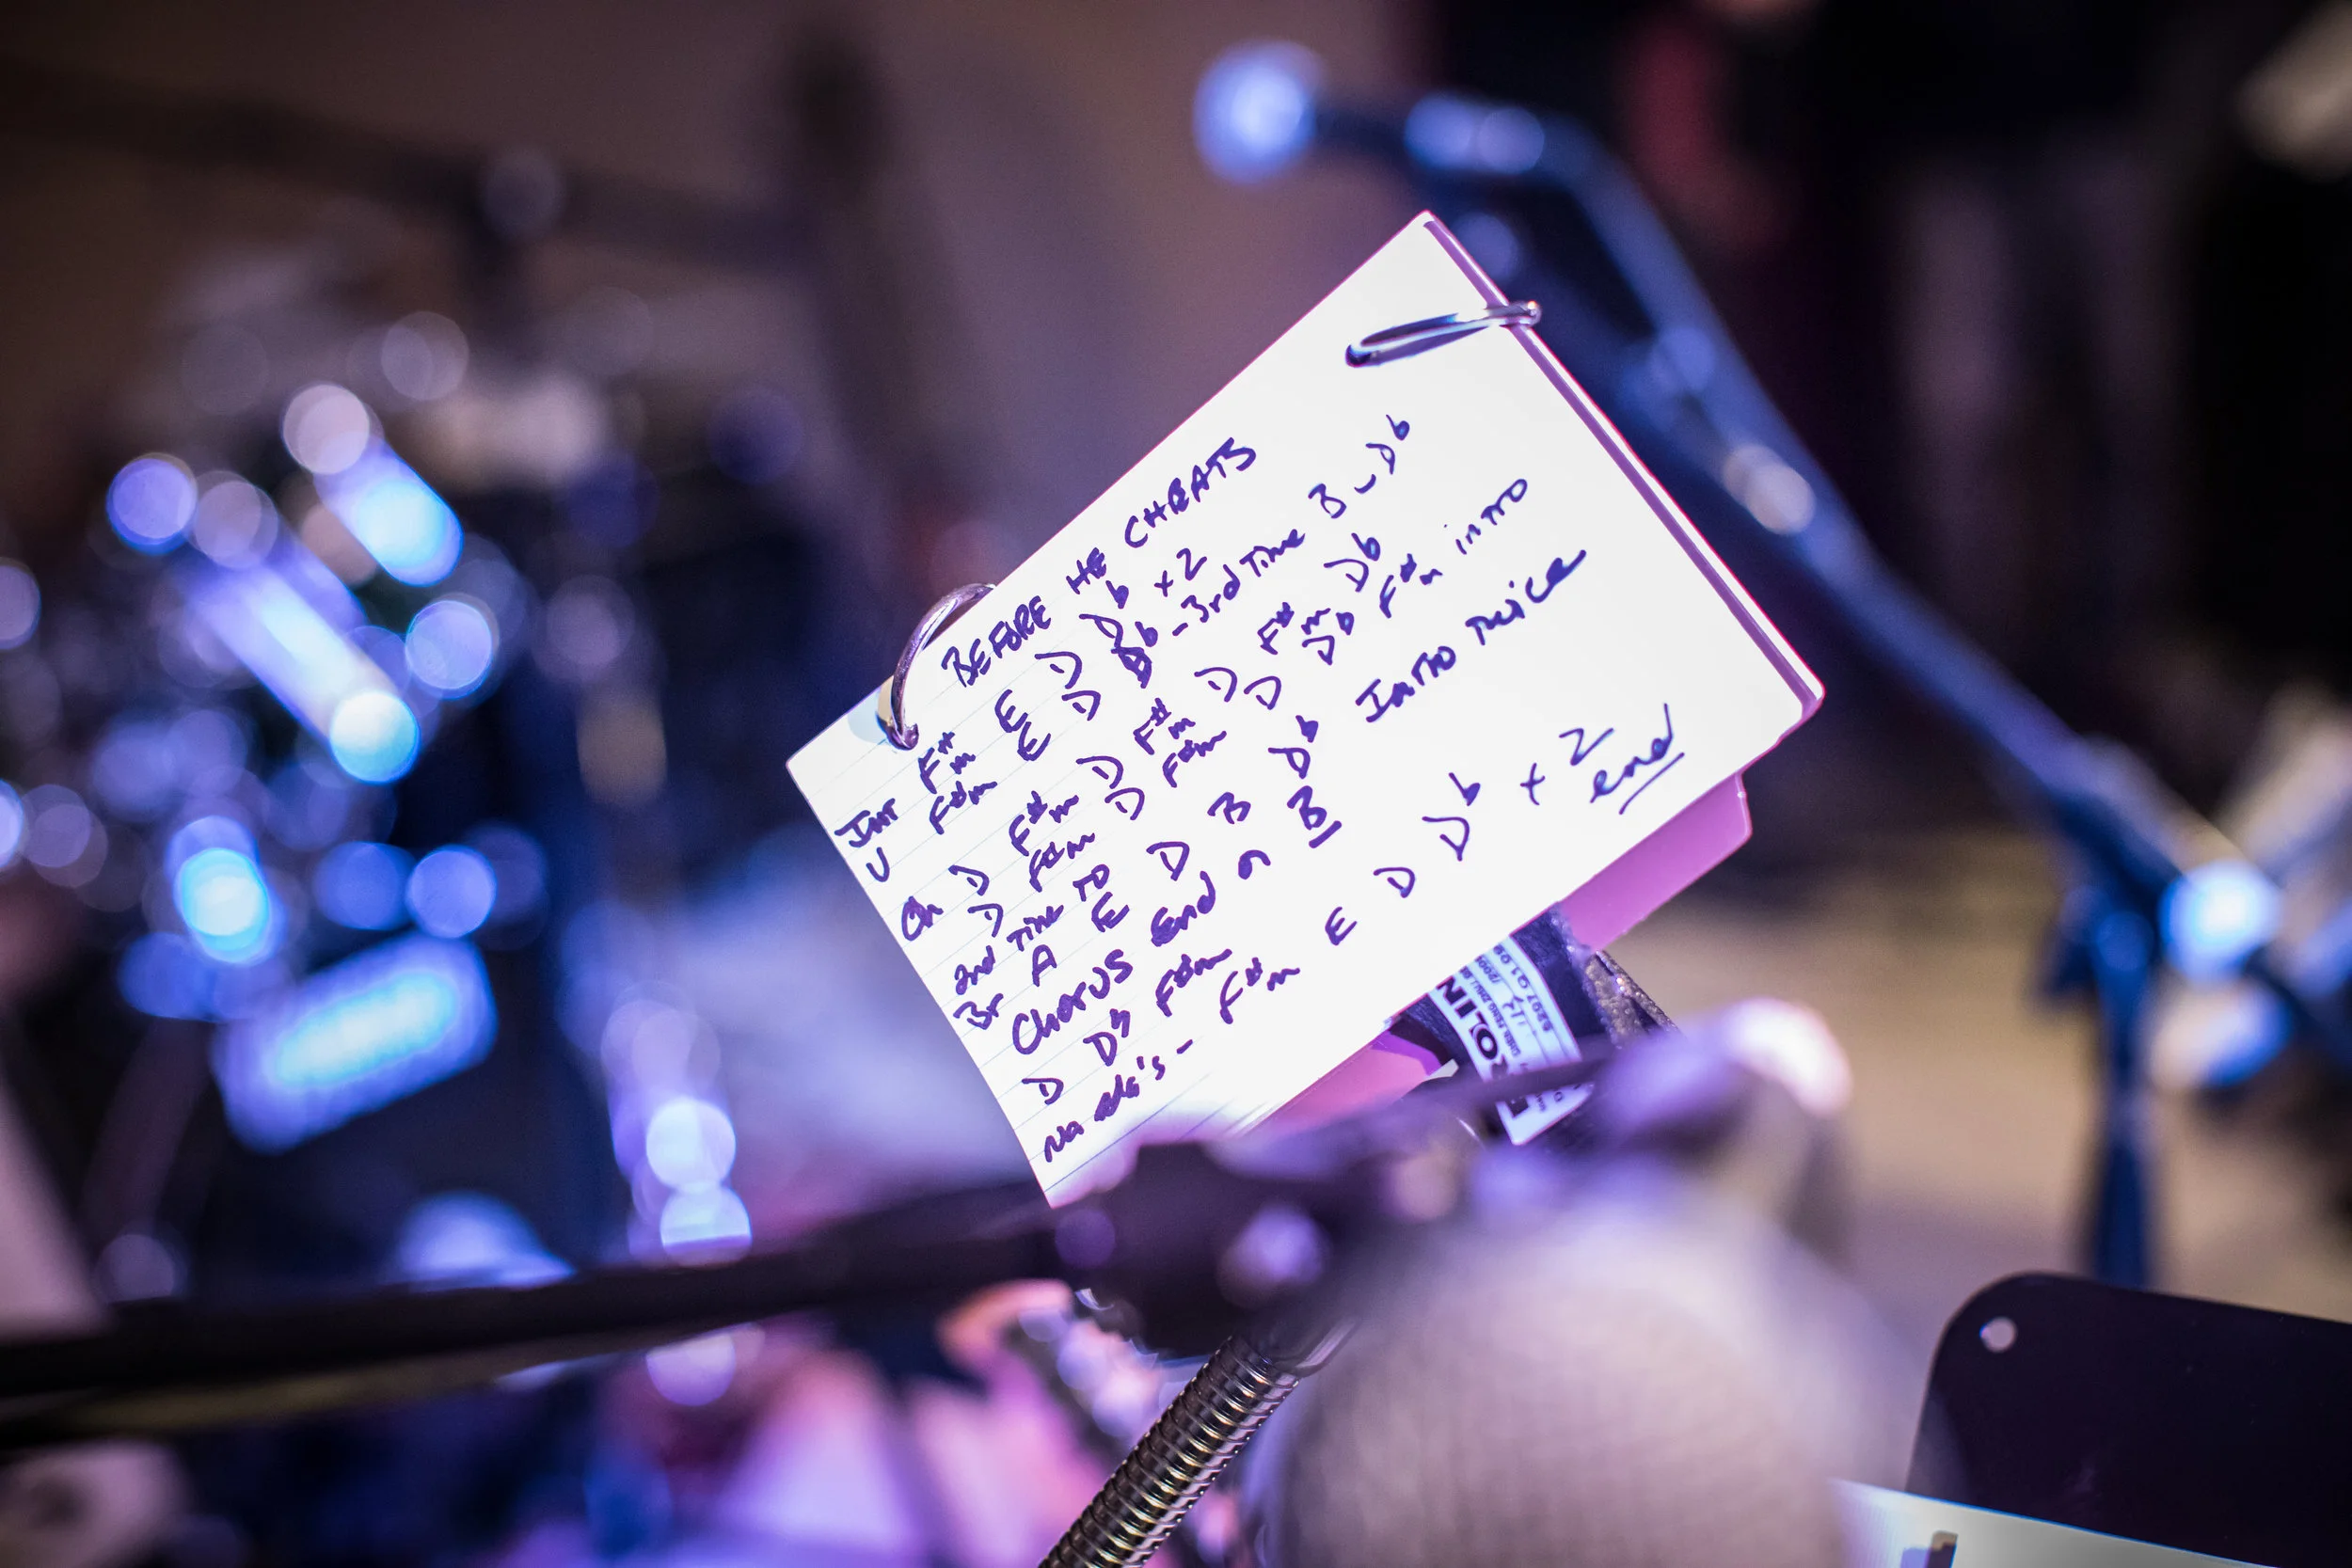 BEFORE HE CHEATS
Int F#m E D Db x2
V F#m E D Db - 3rd Time B - Db
Ch D F#m D F#m D F#m Db
D F#m D F#m D Db F#m intro
2nd Time TO
Br A E D B Db Intro Twice
Chorus End on B
D Db F#m
Na ada's - F#m E D Db x2
end